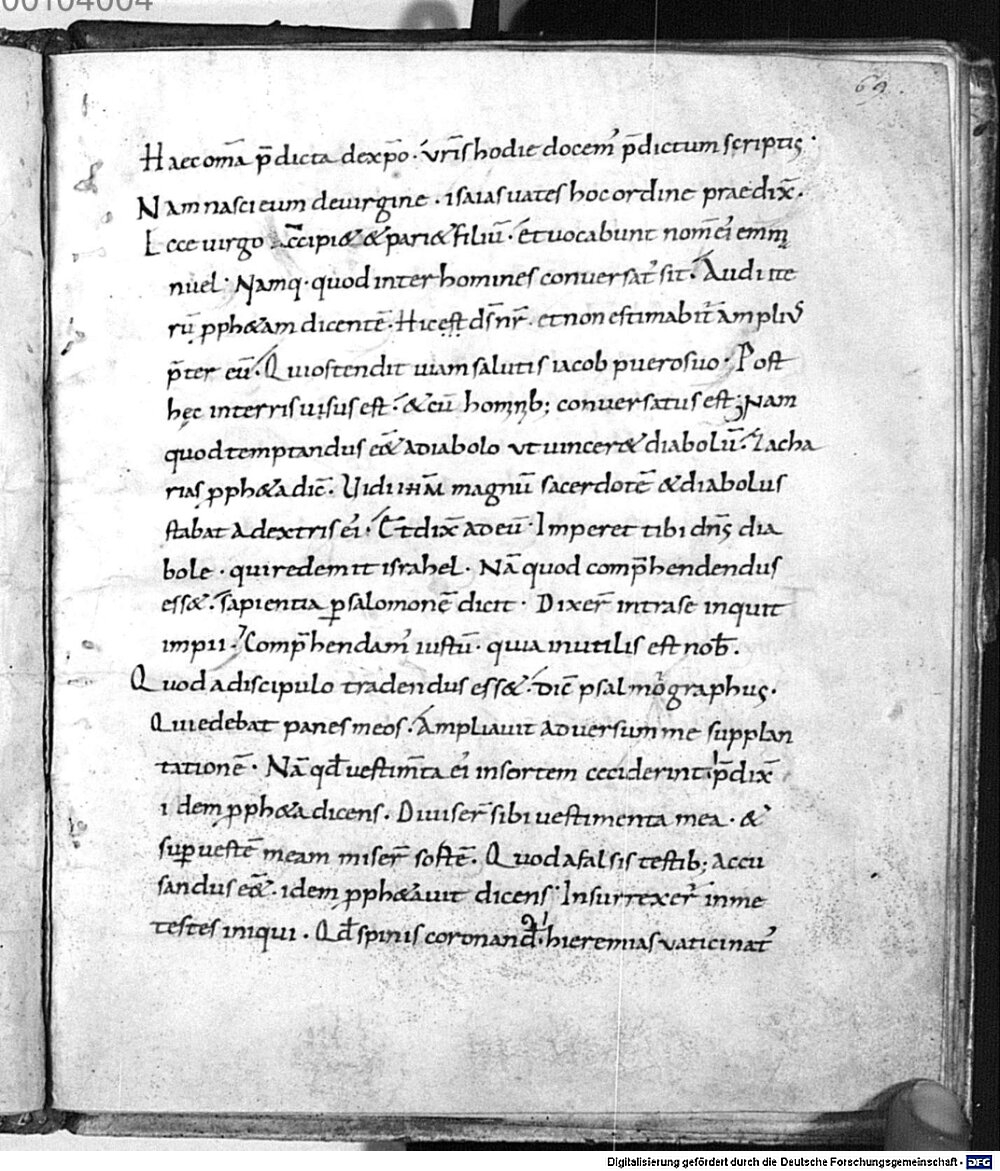 00104004
69.
Haec om̄a p̄dicta dexp̄o· vr̄is hodie docem᾽ p̄dictum scriptis·
Nam nasci eum devirgine· isaias uates hoc ordine praedix̄·
Ecce uirgo accipi& & pari& filiū· et uocabunt nom̄ ei᾽ emm̄
nuel· Namq· quod inter homines conversat᾽ sit· Audi ite
rū pph&am dicentē· Hic est ds̄ nr̄· et non estimabit᾽ ampliꝰ
p̄ter eū· Qui ostendit uiam salutis iacob puero suo· Post
hęc interris uisus est· & cū hominib; conversatus est; Nam
quod temptandus eēt adiabolo ut uincer& diabolū· Zacha
rias pph&a dic̄· Uidi ihm̄ magnū sacerdotē & diabolus
stabat adextris ei᾽· Et dix̄ ad eū· Imperet tibi dn̄s dia
bole· qui redemit israhel· Nā quod comp̄hendendus
ess&· sapientia p salomonē dicit· Dixer̄ intra se inquit
impii· Comp̄hendam᾽ iustū· quia inutilis est nob̄·
Quod adiscipulo tradendus ess&· dic̄ psalmographus·
Qui edebat panes meos· Ampliavit adversum me supplan
tationē· Nā qd̄ uestim̄ta ei᾽ insortem ceciderint· p̄dix̄
idem pph&a dicens· Diviser̄ sibi uestimenta mea· &
sup uestē meam miser̄ sortē· Quod afalsis testib; accu
sandus eēt· idem pph&avit dicens· Insurrexer̄ inme
testes iniqui· Qd̄ spinis coronand᾽· hieremias vaticinat᾽
Digitalisierung gefördert durch die Deutsche Forschungsgemeinschaft - DFG